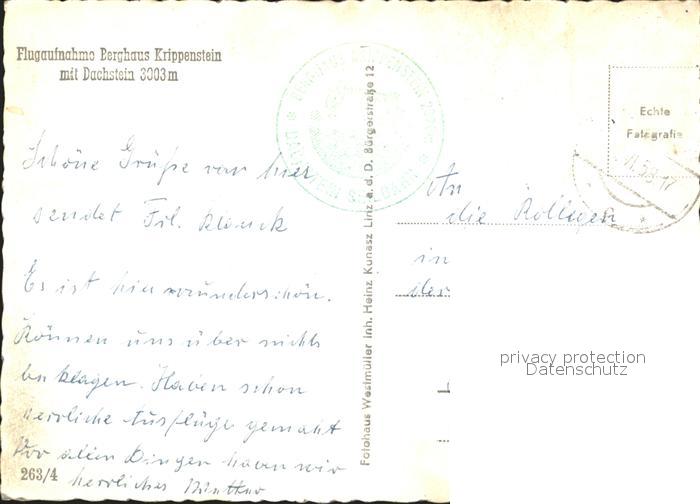 Flugaufnahme Berghaus Krippenstein
mit Dachstein 3003m
Schöne Grüße von hier
sendet Frl. Klauck
Es ist hier wunderschön.
Können uns über nichts
beklagen. Haben schon
herrliche Ausflüge gemacht
Vor allen Dingen haben wir
herrliches Wetter
263/4
Fotohaus Westmüller Inh. Heinz Kunasz Linz a. d. D. Bürgerstraße 12
Echte
Fotografie
An
die Kollegen
in
der
privacy protection
Datenschutz